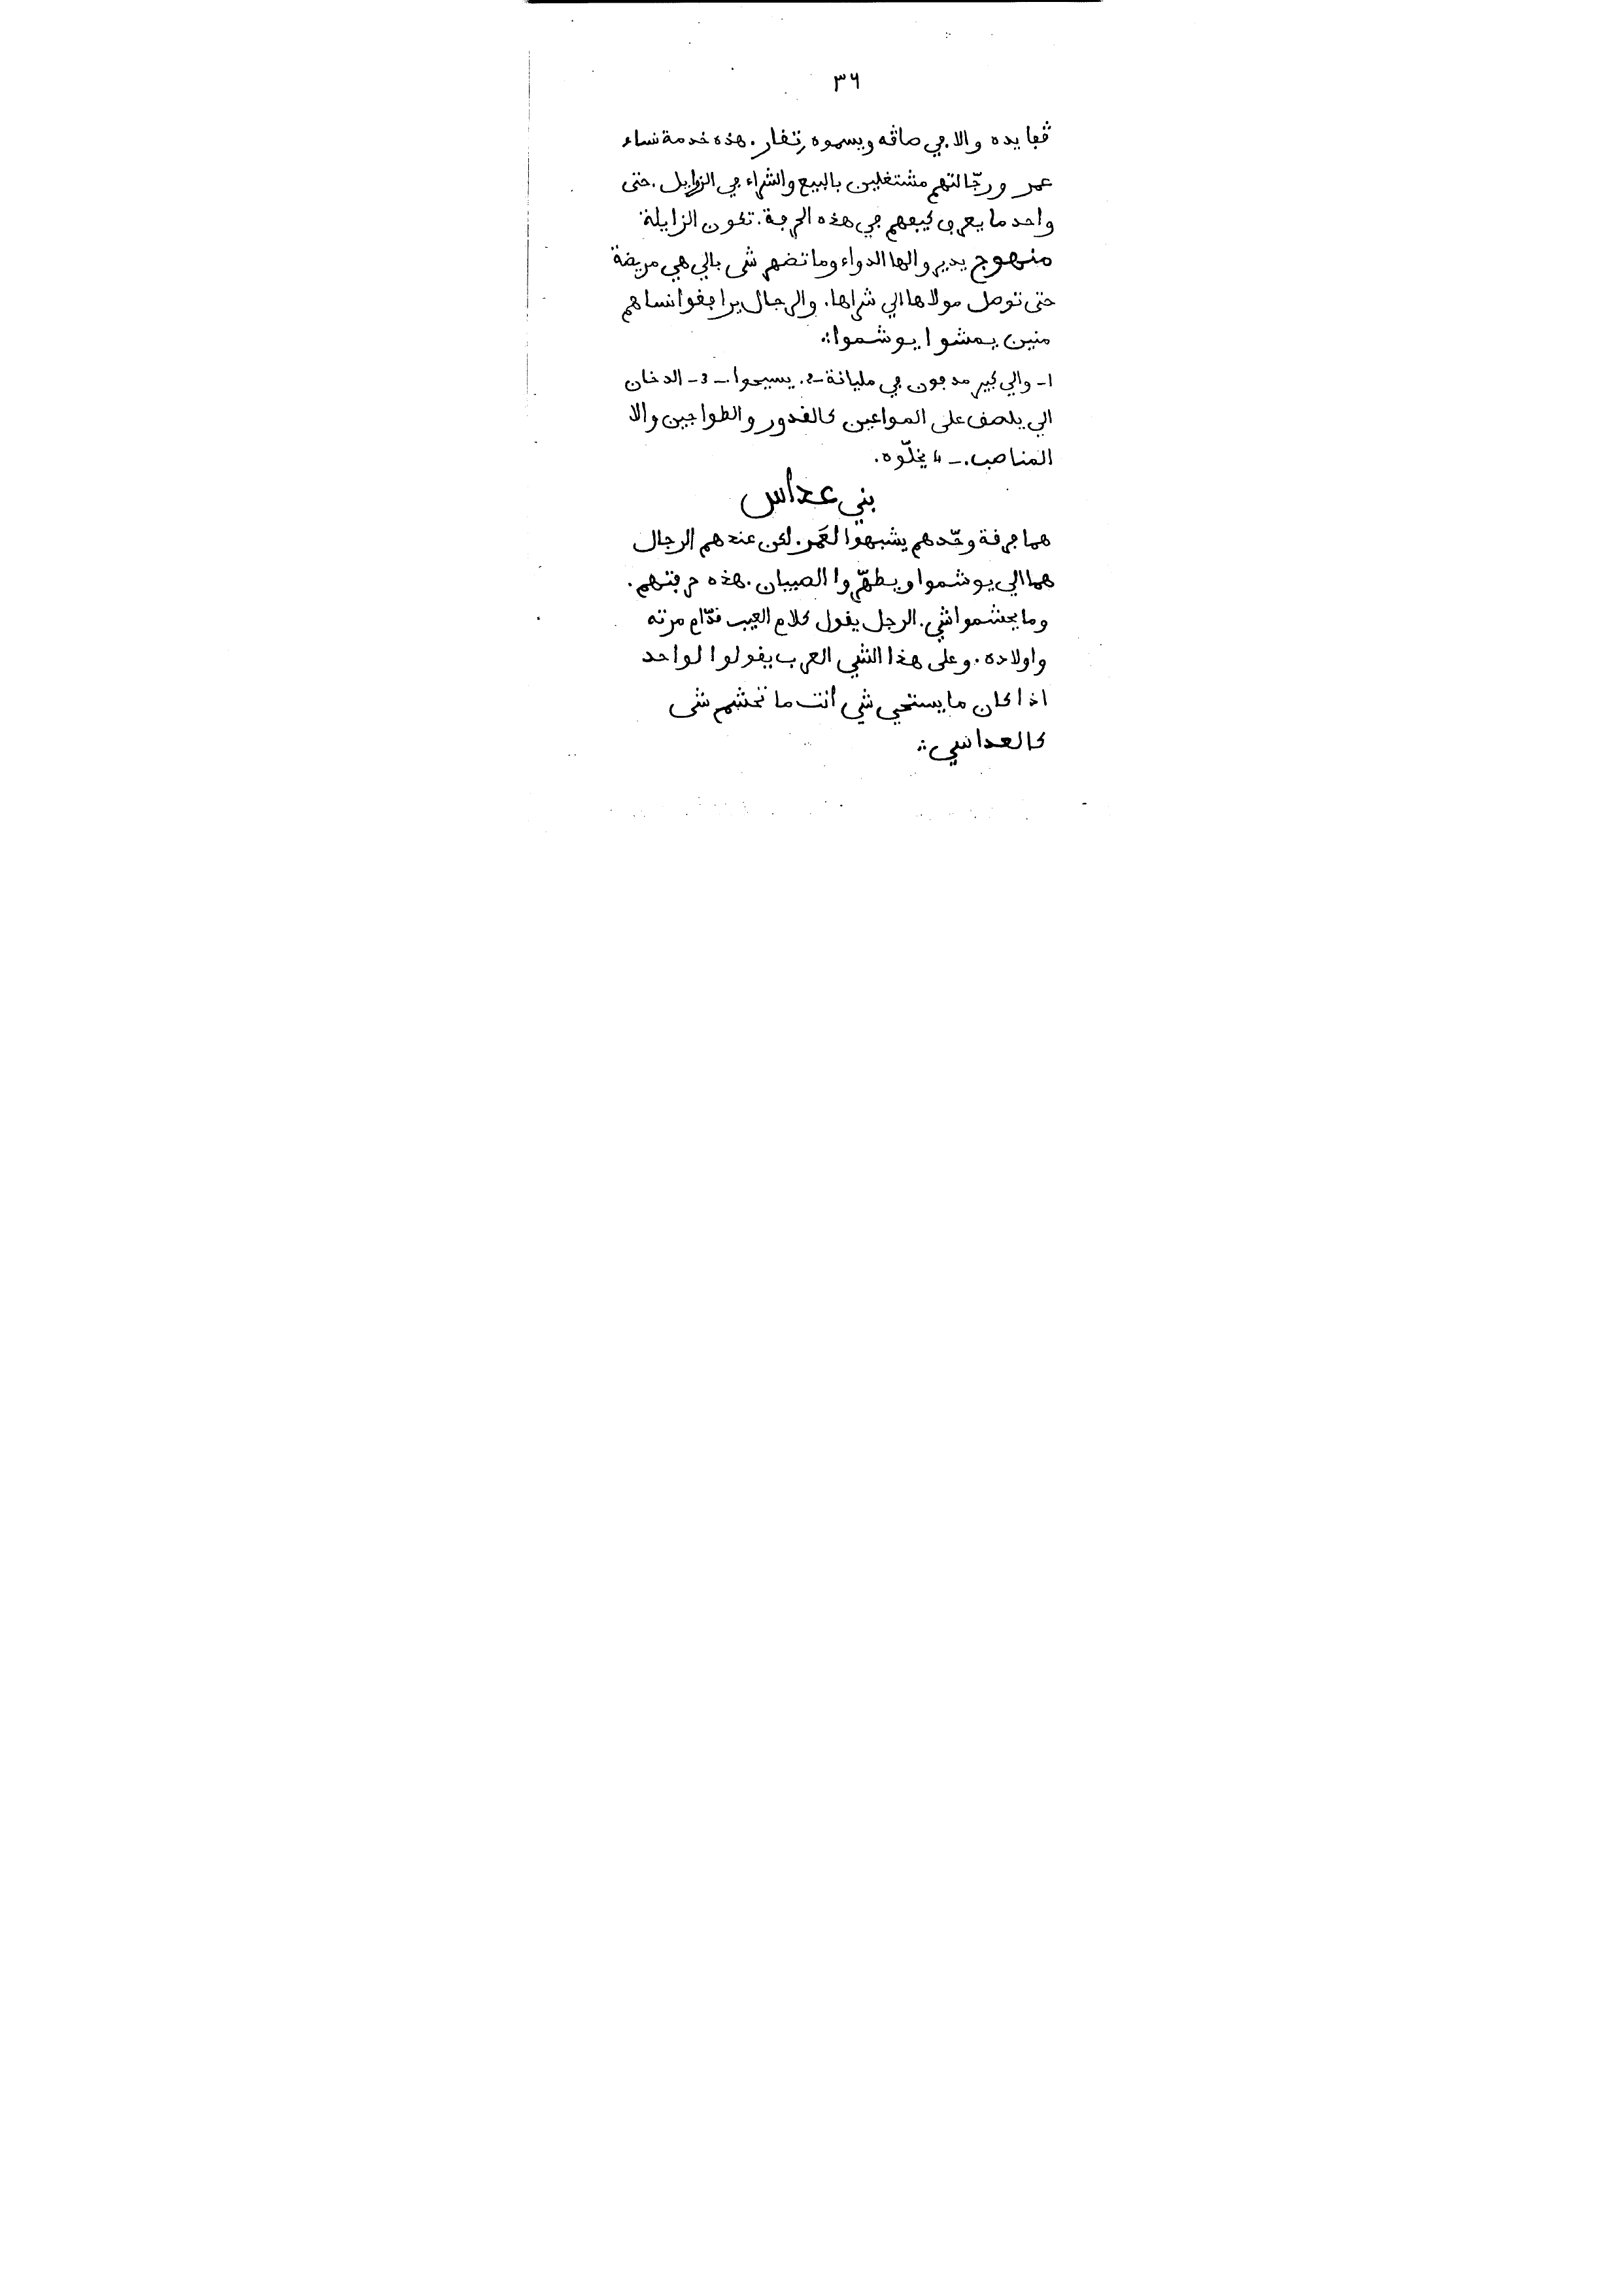 ٣٦
ڨفا يده والا ڢي صاڨه ويسموه زنڧار. هذه خدمة نساء
عمر ورجّالتهم مشتغلين بالبيع والشراء ڢي الزوايل. حتى
واحد ما يعرڢ كيڢهم ڢي هذه الحرڢة. تكون الزايلة
منهوج يديروا لها الدواء وما تضهر شى بالي هي مريضة
حتى توصل مولاها الي شراها. والرجال يراڢڧوا نساهم
منين يمشوا يوشموا∴
١- والي كبير مدڢون ڢي مليانة -2. يسيحوا. -3- الدخان
الي يلصڧ على المواعين كالڧدور والطواجين والا
المناصب. - 4 يخلّوه.
بني عداس
هما ڢرڧة وحّدهم يشبهوا لعَمر. لكن عندهم الرجال
هما الي يوشموا ويطهّروا الصبيان. هذه حرڢتهم.
وما يحشموا شي. الرجل يڧول كلام العيب ڧدّام مرته
واولاده. وعلى هذا الشي العرب يڧولوا لواحد
اذا كان ما يستحي شي أنت ما تحشم شى
كالعداسي∴